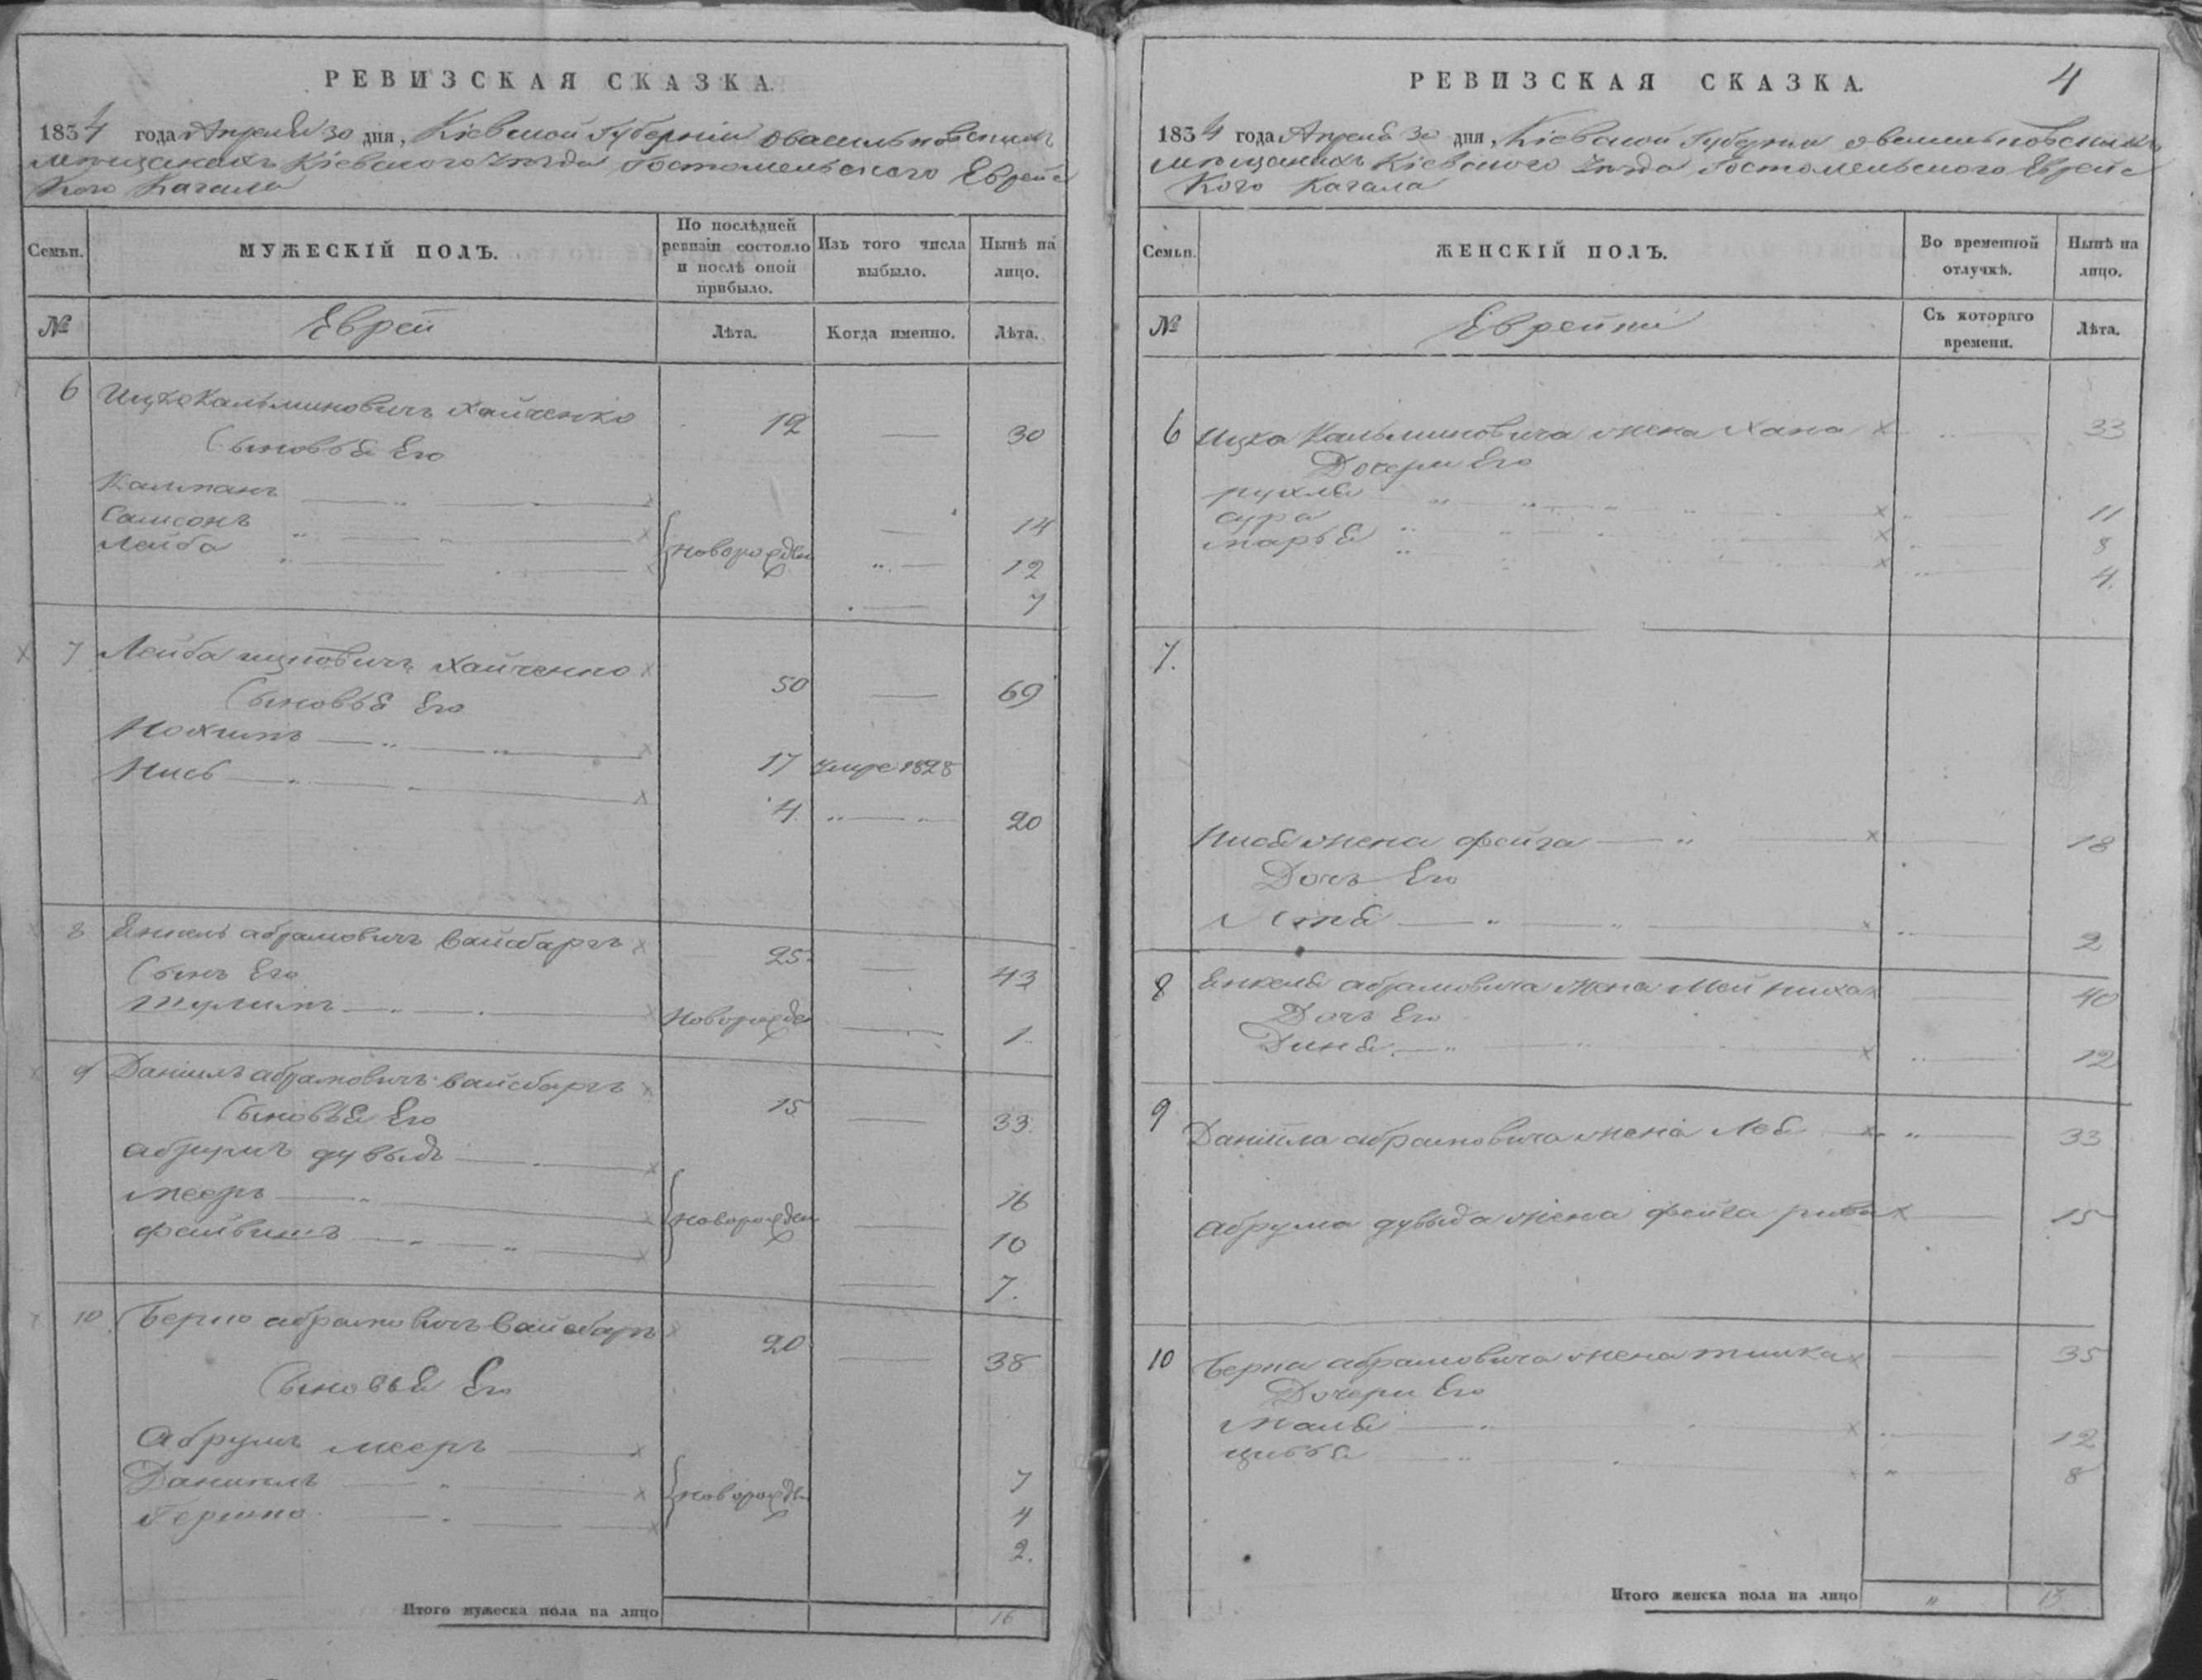 РЕВИЗСКАЯ СКАЗКА.
1834 года Апреля 30 дня, Кіевской Губерніи о васильковскихъ
мещанахъ Кіевского уезда Гостомельского Еврейс
кого Кагала
Семьи.
МУЖЕСКІЙ ПОЛЪ.
По послѣдней
ревизіи состояло
и послѣ оной
прибыло.
Изъ того числа
выбыло.
Нынѣ на
лицо.
№
Еврей
Лѣта.
Когда именно.
Лѣта.
6 Ицко Кальминовичъ Хайченко 12 — 30
Сыновья Его
Кальманъ — 14
Самсонъ Новорожден — 12
Лейба — 7
7 Лейба Ицковичъ Хайченко 50 — 69
Сыновья Его
Нохимъ 17 умре 1828
Нись 4 — 20
8 Янкель абрамовичъ Вайсбаргъ 25 — 43
Сынъ Его
Шулимъ Новорожден — 1
9 Даніилъ абрамовичъ Вайсбаргъ 15 — 33
Сыновья Его
абрумъ дувыдъ 16
мееръ Новорожден — 10
файвишъ — 7.
10 Берко абрамовичъ Вайсбаргъ 20 — 38
Сыновья Его
Абрумъ мееръ 7
Даниилъ Новорожден 4
Гершко 2.
Итого мужеска пола на лицо 16
РЕВИЗСКАЯ СКАЗКА.
4
1834 года Апреля 30 дня, Кіевской Губерніи о васильковскихъ
мещанахъ Кіевского уезда Гостомельского Еврейс
кого Кагала
Семьи.
ЖЕНСКІЙ ПОЛЪ.
Во временной
отлучкѣ.
Нынѣ на
лицо.
№
Еврейки
Съ котораго
времени.
Лѣта.
6 Ицка Кальминовича жена Хана 33
Дочери Его
рухля 11
сура 8
марья 4.
7.
Нися жена фейга — 18
Дочь Его
2
8 Янкеля абрамовича жена — 40
Дочь Его
Диня — 12
9 Даніила абрамовича жена Лея — 33
абрума дувыда жена фейга рива — 15
10 Берка абрамовича жена — 35
Дочери Его
Маля — 12
цивья — 8
Итого женска пола на лицо " 13